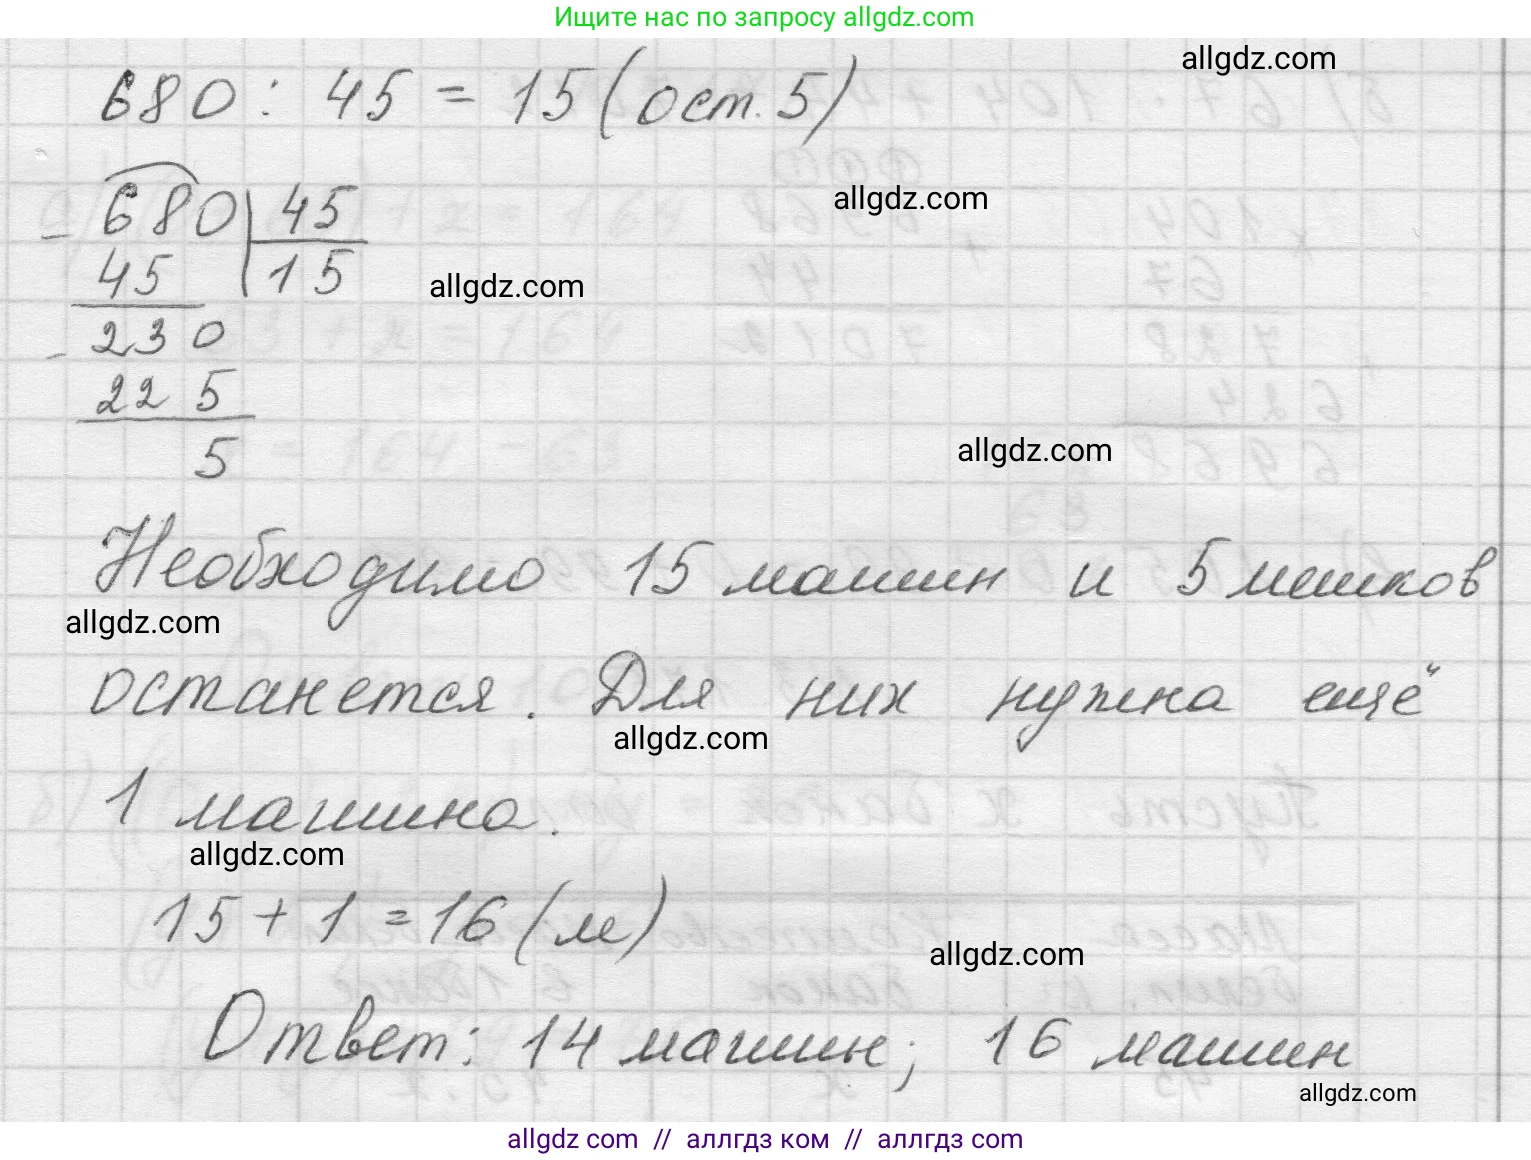 Ищите нас по запросу allgdz.com
allgdz.com
680 : 45 = 15 (ост. 5)
680 45
allgdz.com
45 15
allgdz.com
230
225
5
allgdz.com
Необходимо 15 машин и 5 мешков
allgdz.com
останется. Для них нужна ещё
allgdz.com
1 машина.
allgdz.com
15 + 1 = 16 (м)
allgdz.com
Ответ: 14 машин; 16 машин
allgdz.com
allgdz com // аллгдз ком // аллгдз com